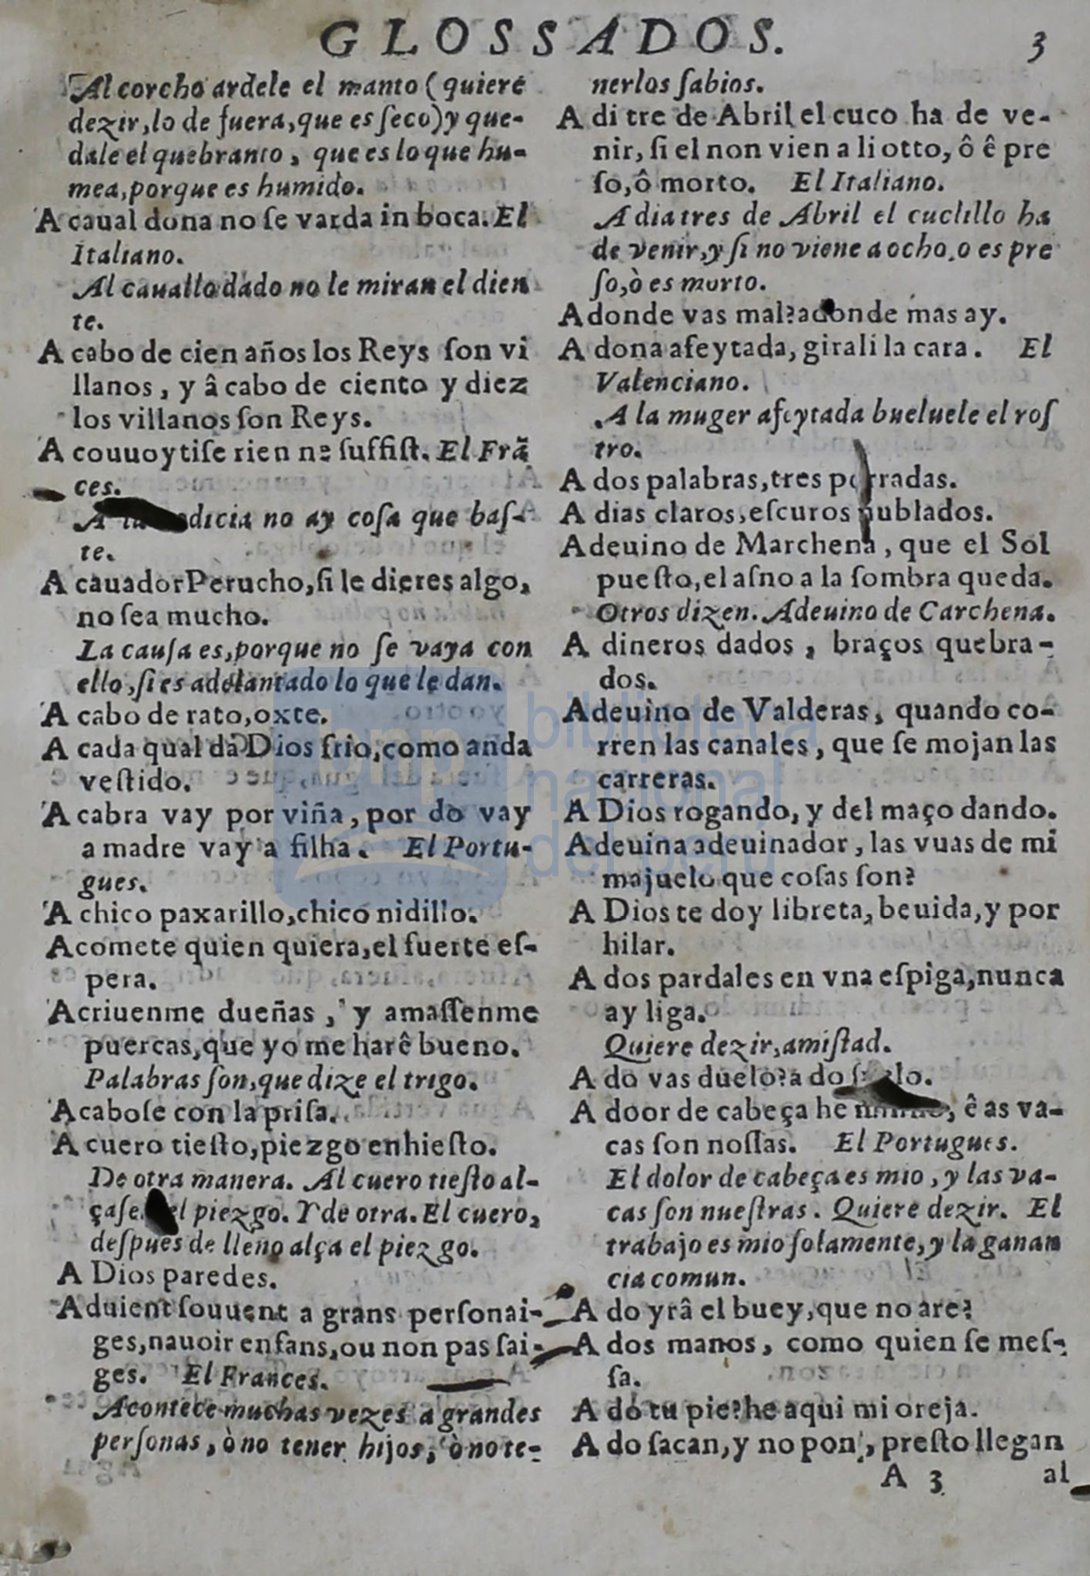 GLOSSADOS.
3
Al corcho ardele el manto (quiere
dezir, lo de fuera, que es ſeco) y que-
dale el quebranto, que es lo que hu-
mea, porque es humido.
A caual dona no ſe varda in boca. El
Italiano.
Al cauallo dado no le miran el dien
te.
A cabo de cien años los Reys ſon vi
llanos, y â cabo de ciento y diez
los villanos ſon Reys.
A couuoytiſe rien ne ſuffiſt. El Frã
ces.
A la dicia no ay coſa que baſ-
te.
A cauador Perucho, ſi le dieres algo,
no ſea mucho.
La cauſa es, porque no ſe vaya con
ello, ſi es adelantado lo que le dan.
A cabo de rato, oxte.
A cada qual dà Dios frio, como anda
veſtido.
A cabra vay por viña, por do vay
a madre vay a filha. El Portu-
gues.
A chico paxarillo, chico nidillo.
Acomete quien quiera, el fuerte eſ-
pera.
Acriuenme dueñas, y amaſſenme
puercas, que yo me harê bueno.
Palabras ſon, que dize el trigo.
Acaboſe con la priſa.
A cuero tieſto, piezgo enhieſto.
De otra manera. Al cuero tieſto al-
çaſe el piezgo. Y de otra. El cuero,
deſpues de lleno alça el piezgo.
A Dios paredes.
Aduient ſouuent a grans perſonai-
ges, nauoir enfans, ou non pas ſai-
ges. El Frances.
Acontece muchas vezes a grandes
perſonas, ò no tener hijos, ò no te-
nerlos ſabios.
A di tre de Abril el cuco ha de ve-
nir, ſi el non vien a li otto, ô ê pre
ſo, ô morto. El Italiano.
A dia tres de Abril el cuclillo ha
de venir, y ſi no viene a ocho, o es pre
ſo, ò es murto.
Adonde vas mal? adonde mas ay.
A dona afeytada, girali la cara. El
Valenciano.
A la muger afeytada bueluele el roſ
tro.
A dos palabras, tres porradas.
A dias claros, eſcuros nublados.
Adeuino de Marchena, que el Sol
pueſto, el aſno a la ſombra queda.
Otros dizen. Adeuino de Carchena.
A dineros dados, braços quebra-
dos.
Adeuino de Valderas, quando co-
rren las canales, que ſe mojan las
carreras.
A Dios rogando, y del maço dando.
Adeuina adeuinador, las vuas de mi
majuelo que coſas ſon?
A Dios te doy libreta, beuida, y por
hilar.
A dos pardales en vna eſpiga, nunca
ay liga.
Quiere dezir, amiſtad.
A do vas duelo? a do ſuelo.
A door de cabeça he minno, ê as va-
cas ſon noſſas. El Portugues.
El dolor de cabeça es mio, y las va-
cas ſon nueſtras. Quiere dezir. El
trabajo es mio ſolamente, y la ganan
cia comun.
A do yrâ el buey, que no are?
A dos manos, como quien ſe meſ-
ſa.
A do tu pie? he aqui mi oreja.
A do ſacan, y no pon, preſto llegan
A 3
al
biblioteca
nacional
del perú
bnp